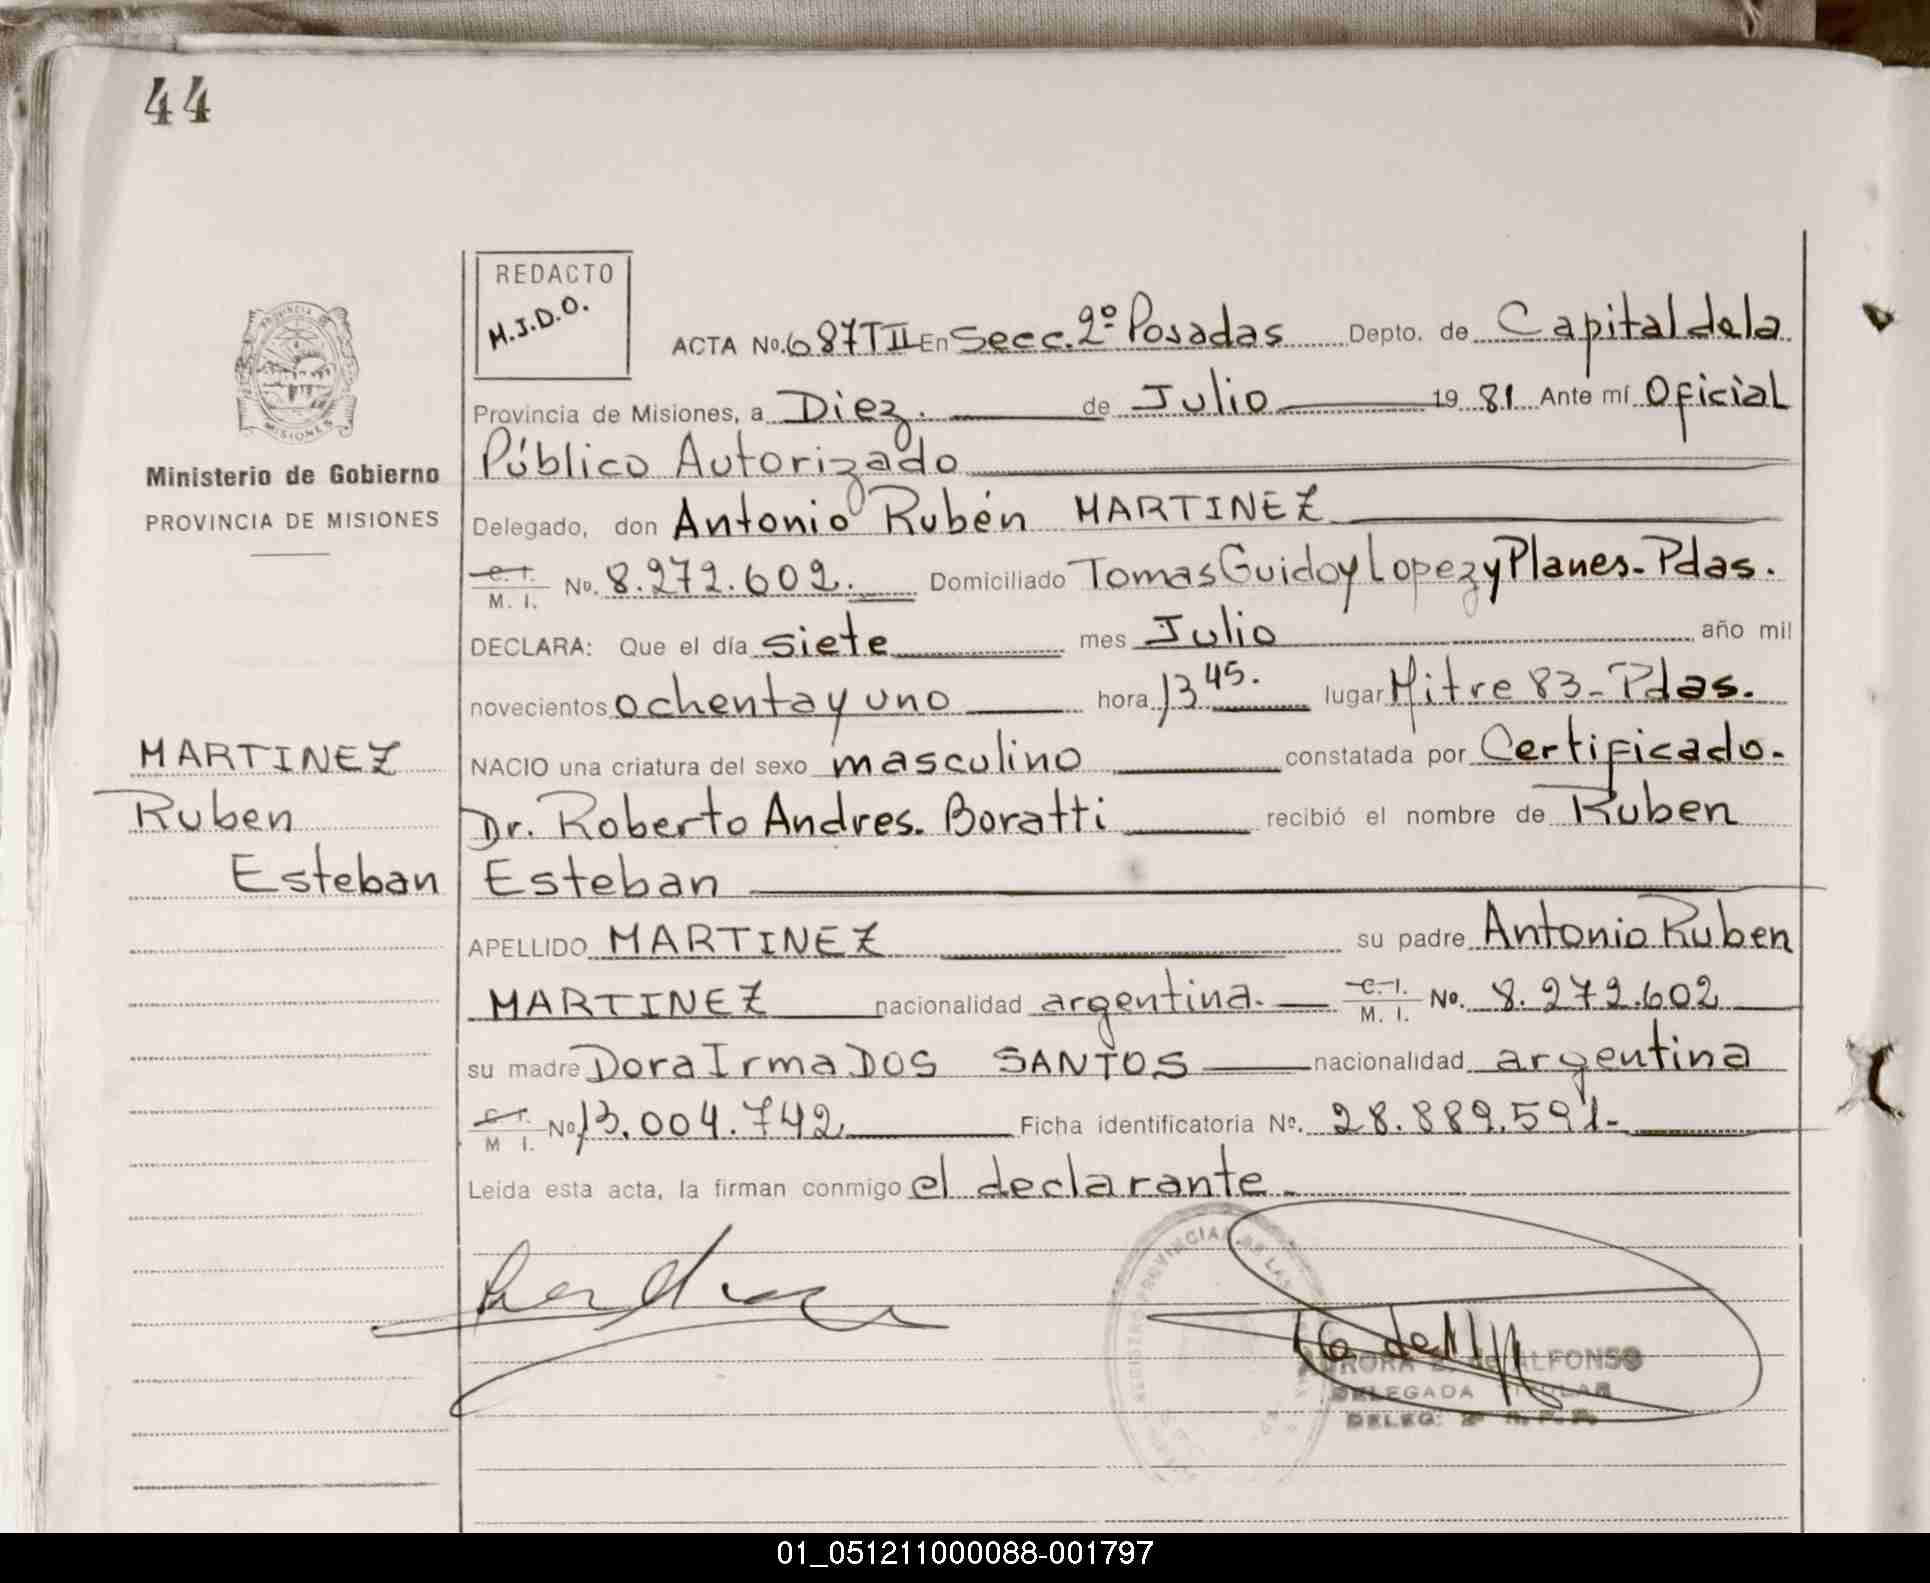 44
REDACTO
M.J.D.O.
PROVINCIA DE
MISIONES
Ministerio de Gobierno
PROVINCIA DE MISIONES
MARTINEZ
Ruben
Esteban
ACTA No. 687TII En Secc. 2º Posadas Depto. de Capital de la
Provincia de Misiones, a Diez. de Julio 19 81 Ante mí Oficial
Público Autorizado
Delegado, don Antonio Rubén MARTINEZ
C. I. / M. I. No. 8.272.602. Domiciliado Tomas Guido y Lopez y Planes - Pdas.
DECLARA: Que el día siete mes Julio año mil
novecientos ochenta y uno hora 13 45. lugar Mitre 83 - Pdas.
NACIO una criatura del sexo masculino constatada por Certificado -
Dr. Roberto Andres. Boratti recibió el nombre de Ruben
Esteban
APELLIDO MARTINEZ su padre Antonio Ruben
MARTINEZ nacionalidad argentina. C. I. / M. I. No. 8.272.602
su madre Dora Irma DOS SANTOS nacionalidad argentina
C. I. / M I. No. 13.004.742 Ficha identificatoria Nº. 28.889.591 -
Leída esta acta, la firman conmigo el declarante -
REGISTRO PROVINCIAL DE LAS
AURORA de ALFONSO
DELEGADA TITULAR
DELEG: 2ª
01_051211000088-001797